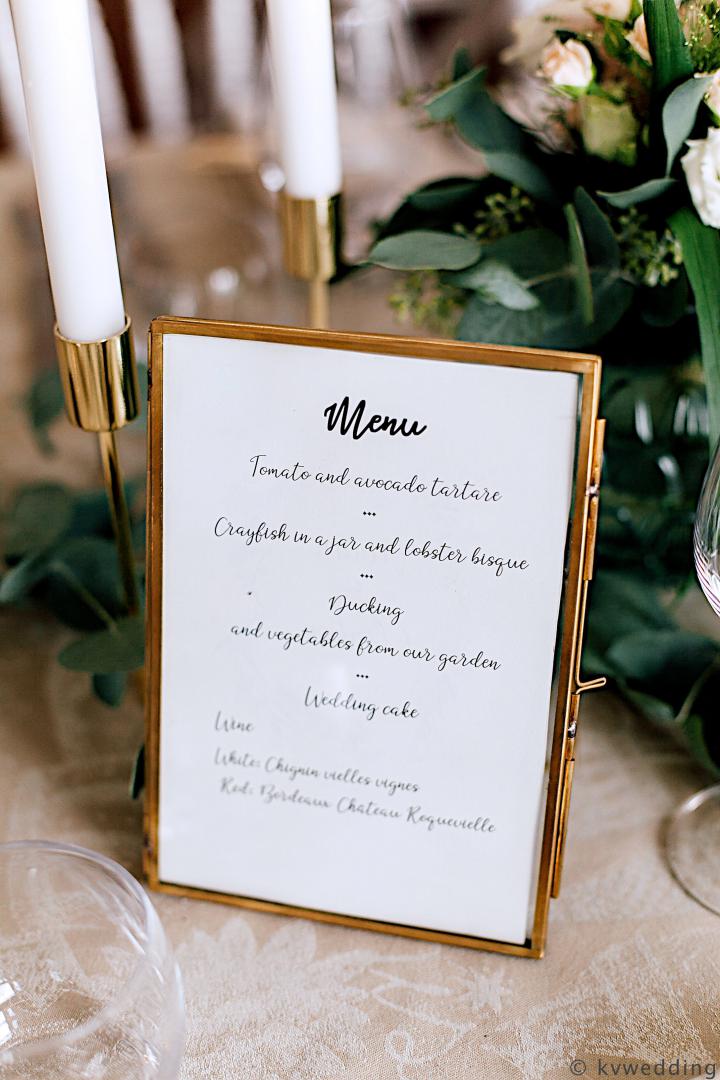 Menu
Tomato and avocado tartare
Crayfish in a jar and lobster bisque
Ducking
and vegetables from our garden
Wedding cake
Wine
White: Chignin vielles vignes
Red: Bordeaux Chateau Roquevielle
© kvwedding